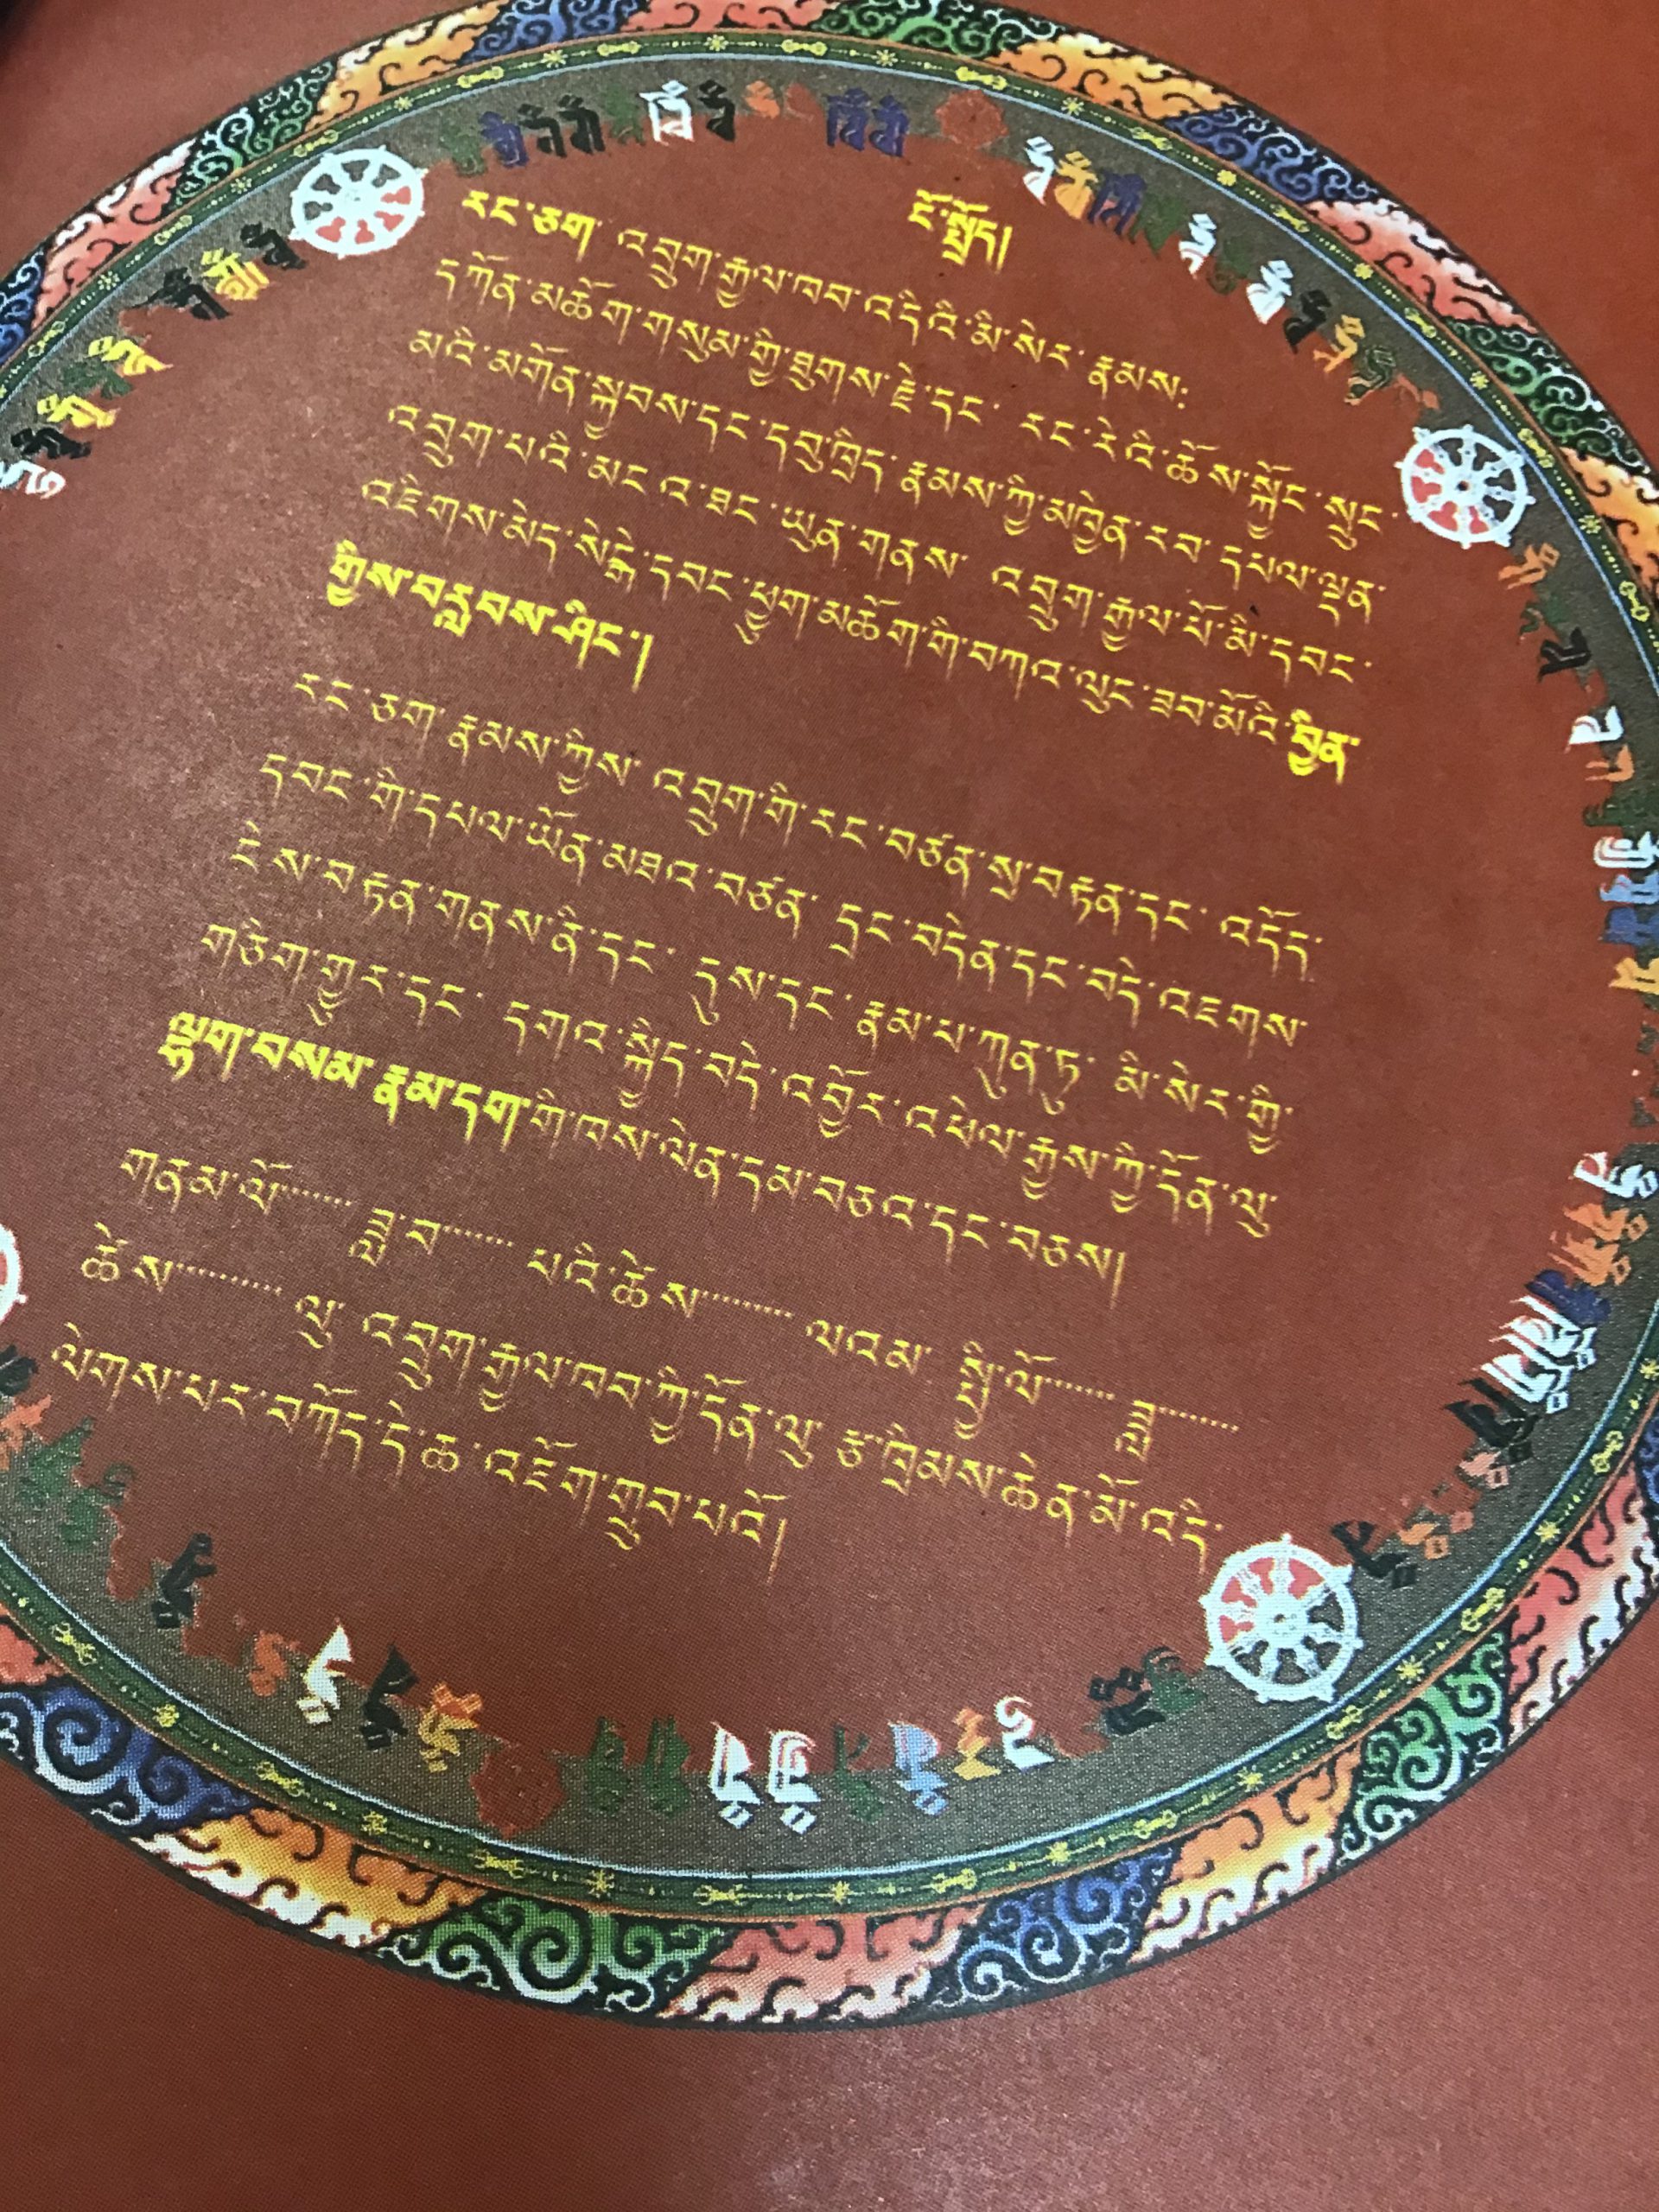 ངོ་སྤྲོད།
རང་ཅག་ འབྲུག་རྒྱལ་ཁབ་འདིའི་མི་སེར་རྣམས:
དཀོན་མཆོག་གསུམ་གྱི་ཐུགས་རྗེ་དང་ རང་རེའི་ཆོས་སྐྱོང་སྲུང་
མའི་མགོན་སྐྱབས་དང་དབུ་ཁྲིད་རྣམས་ཀྱི་མཁྱེན་རབ་དཔལ་ལྡན་
འབྲུག་པའི་མངའ་ཐང་ཡུན་གནས་ འབྲུག་རྒྱལ་པོ་མི་དབང་
འཇིགས་མེད་སེངྒེ་དབང་ཕྱུག་མཆོག་གི་བཀའ་ལུང་ཟབ་མོའི་བྱིན་
གྱིས་བརླབས་ཤིང་།
རང་ཅག་རྣམས་ཀྱིས་ འབྲུག་གི་རང་བཙན་སྲ་བརྟན་དང་ འདོད་
དབང་གི་དཔལ་ཡོན་མཐའ་བཙན་ དྲང་བདེན་དང་བདེ་འཇགས་
ངེས་བརྟན་གནས་ནི་དང་ དུས་དང་རྣམ་པ་ཀུན་ཏུ་ མི་སེར་གྱི་
གཅིག་གྱུར་དང་ དགའ་སྐྱིད་བདེ་འབྱོར་འཕེལ་རྒྱས་ཀྱི་དོན་ལུ་
ལྷག་བསམ་རྣམ་དག་གི་ཁས་ལེན་དམ་བཅའ་དང་བཅས།
གནམ་ལོ་....... ཟླ་བ་....... པའི་ཚེས་......... ལའམ་ སྤྱི་ལོ་....... ཟླ་........
ཚེས་.......... ལུ་ འབྲུག་རྒྱལ་ཁབ་ཀྱི་དོན་ལུ་ རྩ་ཁྲིམས་ཆེན་མོ་འདི་
ལེགས་པར་བཀོད་དེ་ཆ་འཇོག་གྲུབ་པའོ།